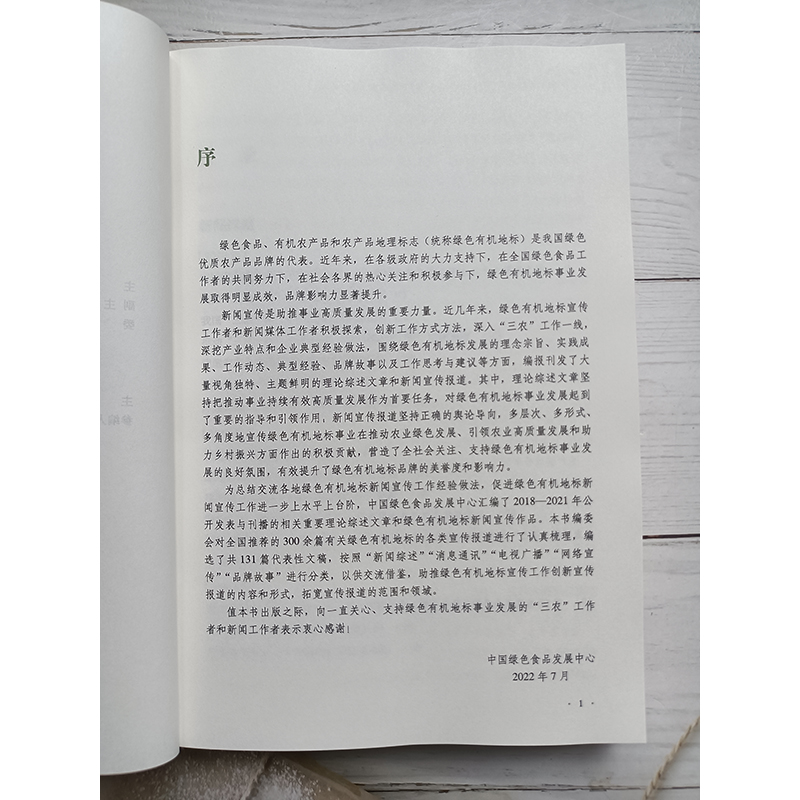 序
绿色食品、有机农产品和农产品地理标志（统称绿色有机地标）是我国绿色
优质农产品品牌的代表。近年来，在各级政府的大力支持下，在全国绿色食品工
作者的共同努力下，在社会各界的热心关注和积极参与下，绿色有机地标事业发
展取得明显成效，品牌影响力显著提升。
新闻宣传是助推事业高质量发展的重要力量。近几年来，绿色有机地标宣传
工作者和新闻媒体工作者积极探索，创新工作方式方法，深入“三农”工作一线，
深挖产业特点和企业典型经验做法，围绕绿色有机地标发展的理念宗旨、实践成
果、工作动态、典型经验、品牌故事以及工作思考与建议等方面，编报刊发了大
量视角独特、主题鲜明的理论综述文章和新闻宣传报道。其中，理论综述文章坚
持把推动事业持续有效高质量发展作为首要任务，对绿色有机地标事业发展起到
了重要的指导和引领作用，新闻宣传报道坚持正确的舆论导向，多层次、多形式、
多角度地宣传绿色有机地标事业在推动农业绿色发展、引领农业高质量发展和助
力乡村振兴方面作出的积极贡献，营造了全社会关注、支持绿色有机地标事业发
展的良好氛围，有效提升了绿色有机地标品牌的美誉度和影响力。
为总结交流各地绿色有机地标新闻宣传工作经验做法，促进绿色有机地标新
闻宣传工作进一步上水平上台阶，中国绿色食品发展中心汇编了2018—2021年公
开发表与刊播的相关重要理论综述文章和绿色有机地标新闻宣传作品。本书编委
会对全国推荐的300余篇有关绿色有机地标的各类宣传报道进行了认真梳理，编
选了共131篇代表性文稿，按照“新闻综述”“消息通讯”“电视广播”“网络宣
传”“品牌故事”进行分类，以供交流借鉴，助推绿色有机地标宣传工作创新宣传
报道的内容和形式，拓宽宣传报道的范围和领域。
值本书出版之际，向一直关心、支持绿色有机地标事业发展的“三农”工作
者和新闻工作者表示衷心感谢！
中国绿色食品发展中心
2022年7月
· 1 ·